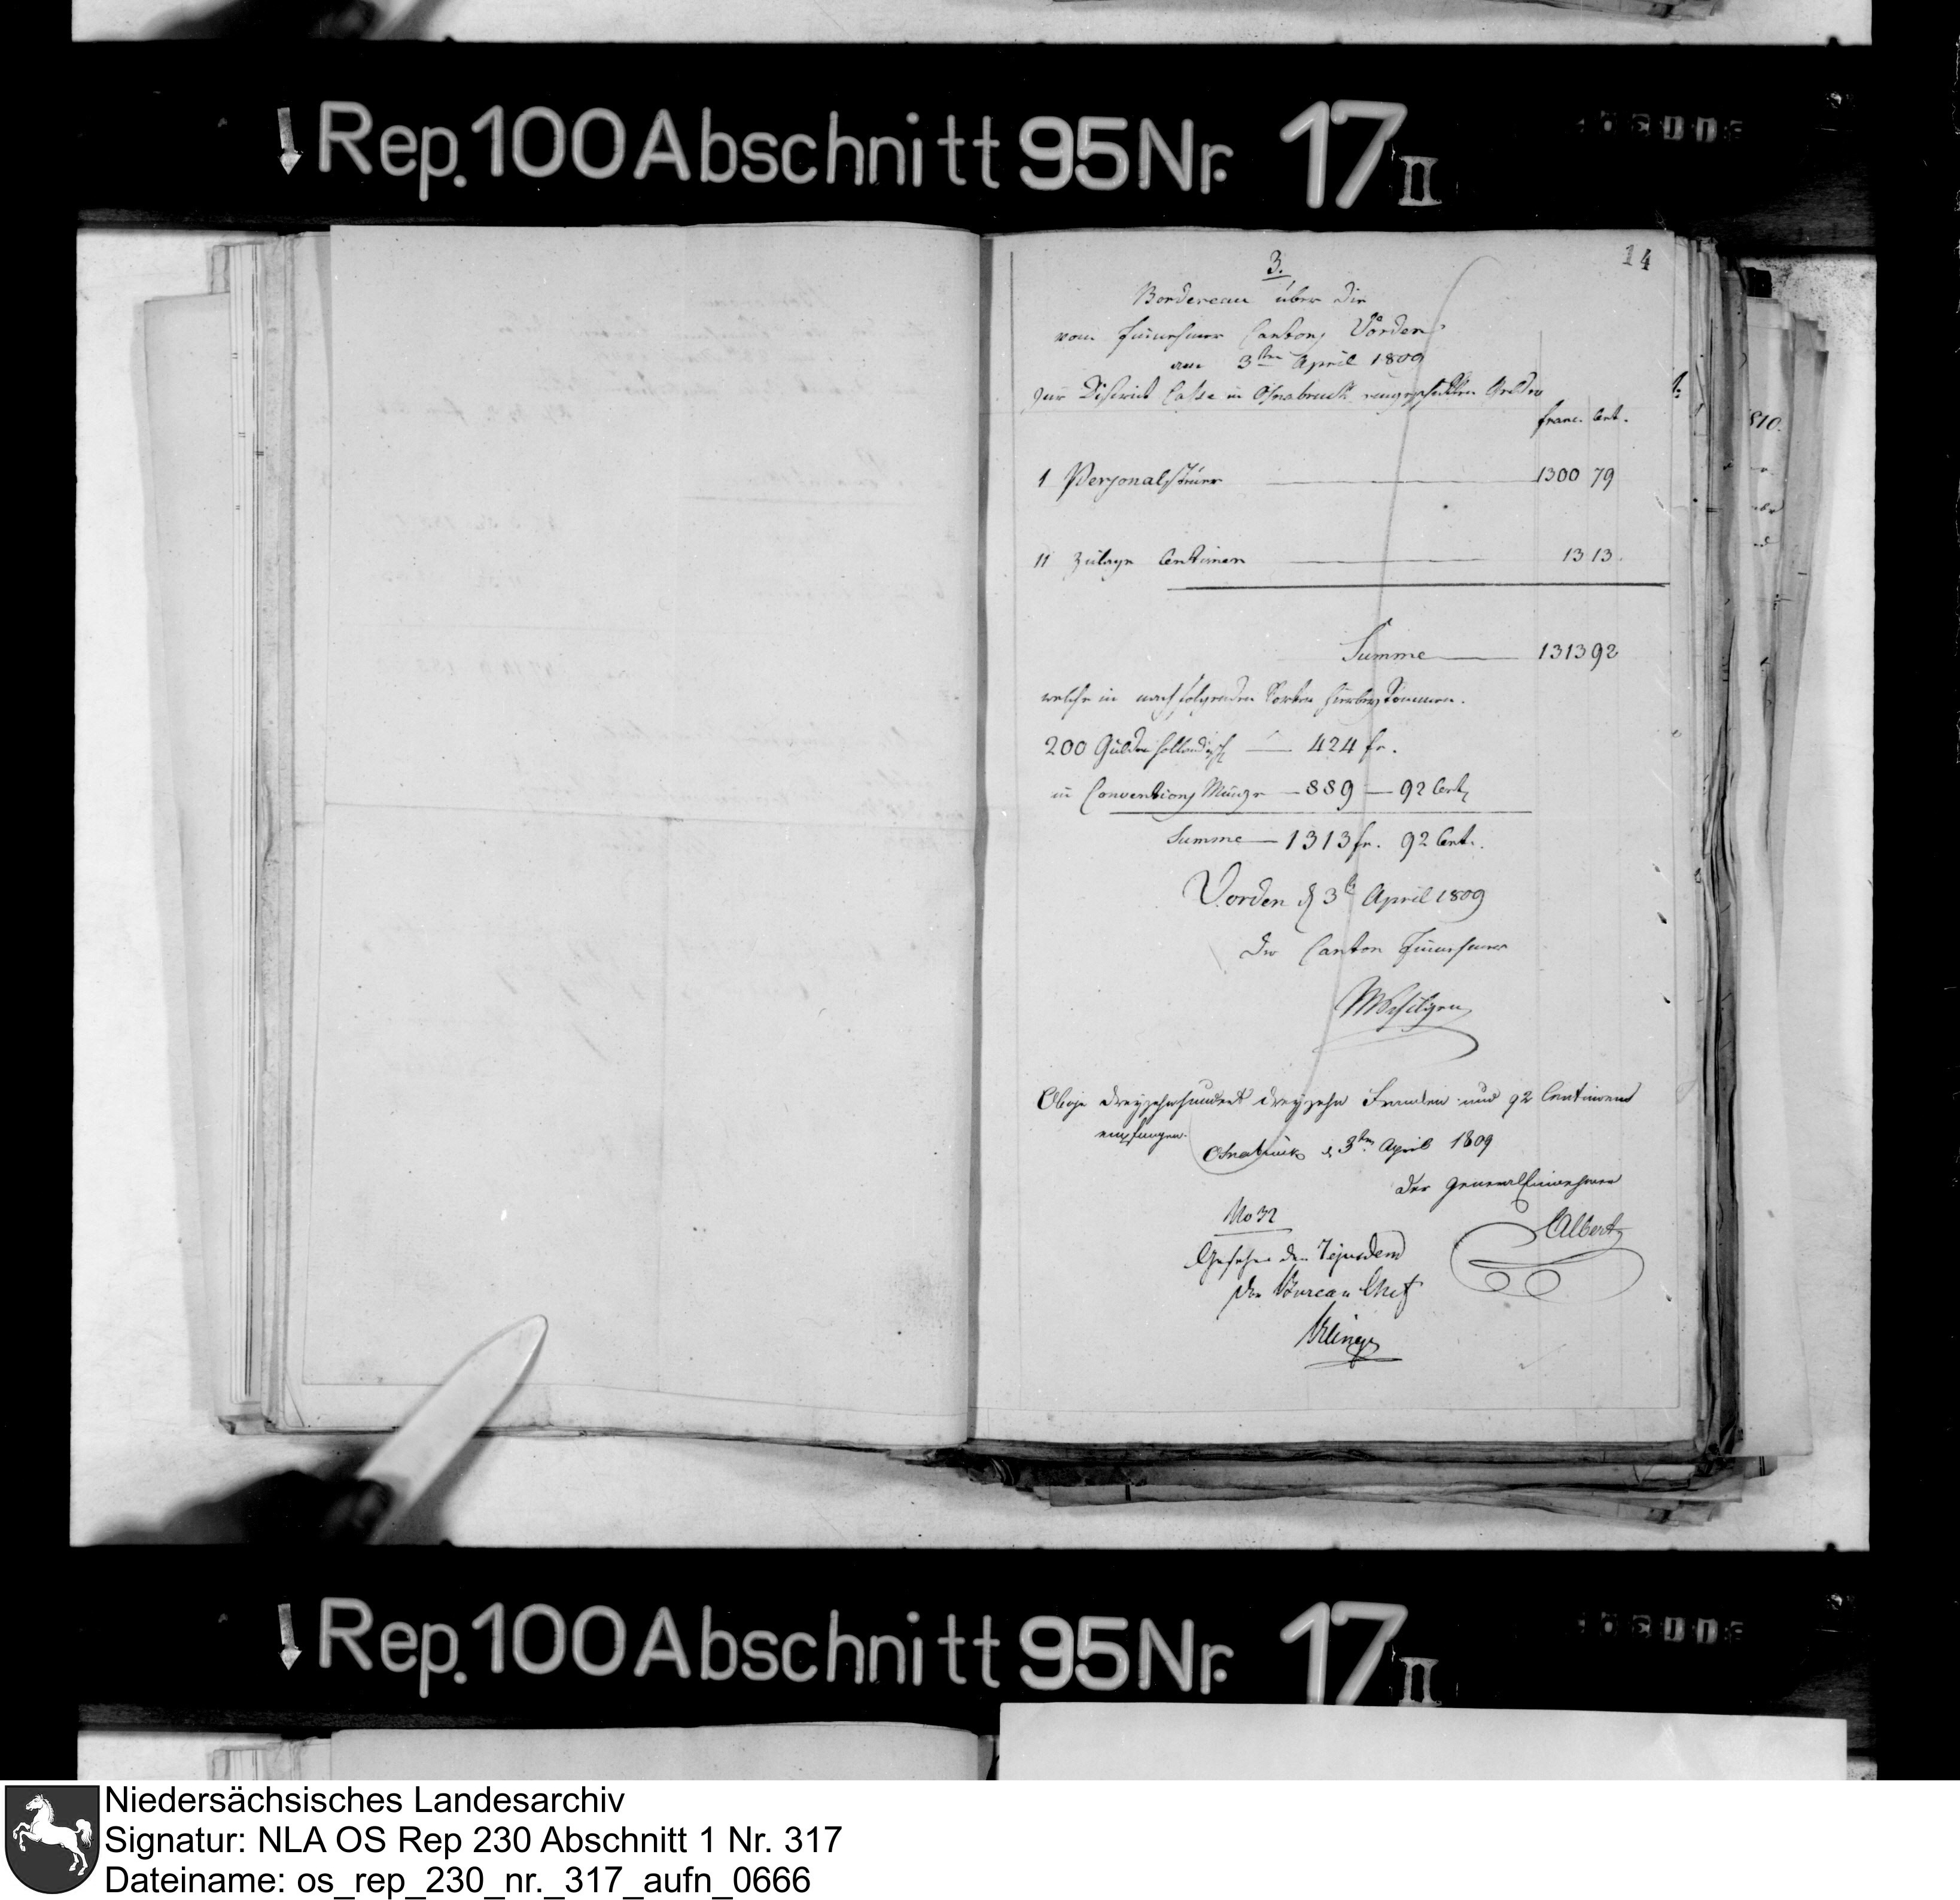 Rep. 100 Abschnitt 95 Nr. 17 II
14
3.
Bordereau über die
vom Einnehmer Cantons Vörden
am 3ten April 1809
zur District Casse in Osnabruck eingeschickten Gelder
franc. Cent.
1 Personalsteuer 1300 79
11 Zulage Centimen 13 13
Summe 1313 92
welche in nachfolgenden Sorten hierbey kommen.
200 Gulden holländisch — 424 fr.
in Conventions Münze — 889 — 92 Cent
Summe — 1313 fr. 92 Cent.
Vörden d 3t April 1809
Der Canton Einnehmer
Obige dreyzehnhundert dreyzehn Franken und 92 Centimen
empfangen.
Osnabrück d 3ten April 1809
Der General Einnehmer
Albert
No 32
Gesehen den 7 ejusdem
Der Bureau Chef
810.
Rep. 100 Abschnitt 95 Nr. 17 II
Niedersächsisches Landesarchiv
Signatur: NLA OS Rep 230 Abschnitt 1 Nr. 317
Dateiname: os_rep_230_nr._317_aufn_0666